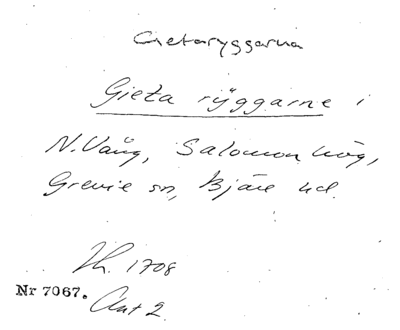 Getaryggarna
Gieta rÿggarne i
N. Vång, Salomonhög,
Grevie sn, Bjäre hd.
Jb. 1708
Nr 7067.
Ant 2